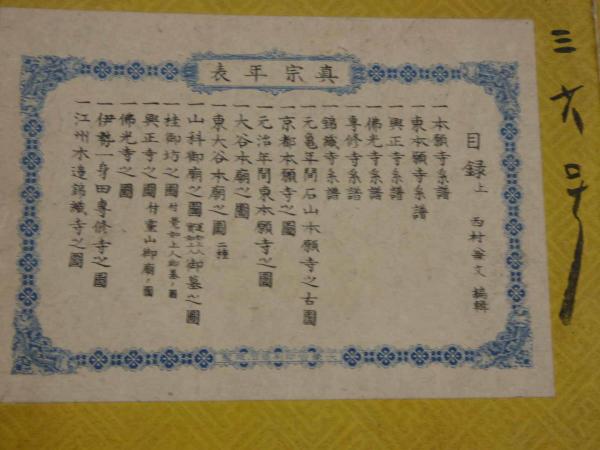 真宗年表
目録 上 西村兼文 編輯
一本願寺系譜
一東本願寺系譜
一興正寺系譜
一佛光寺系譜
一専修寺系譜
一錦織寺系譜
一元亀年間石山本願寺之古圖
一京都本願寺之圖
一元治年間東本願寺之圖
一大谷本廟之圖
一東大谷本廟之圖 二種
一山科御廟之圖 御墓之圖
一桂御坊之圖 付覚如上人御墓ノ圖
一興正寺之圖 付霊山御廟ノ圖
一佛光寺之圖
一伊勢一身田専修寺之圖
一江州木造錦織寺之圖
三六号